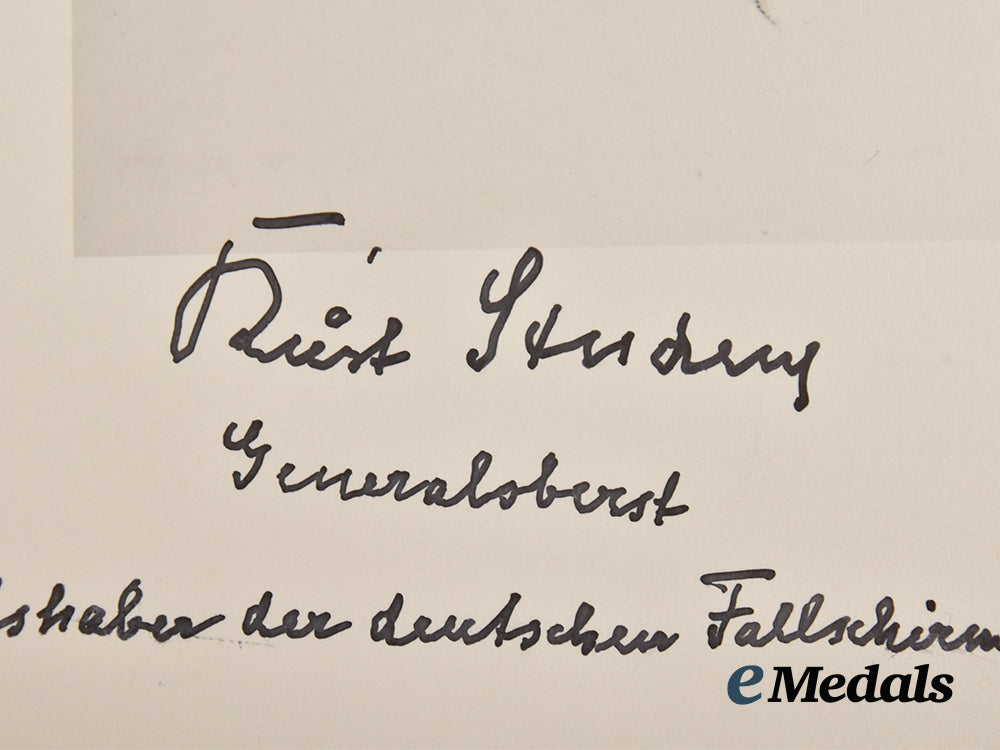 Kurt Student
Generaloberst
shaber der deutschen Fallschirm
eMedals